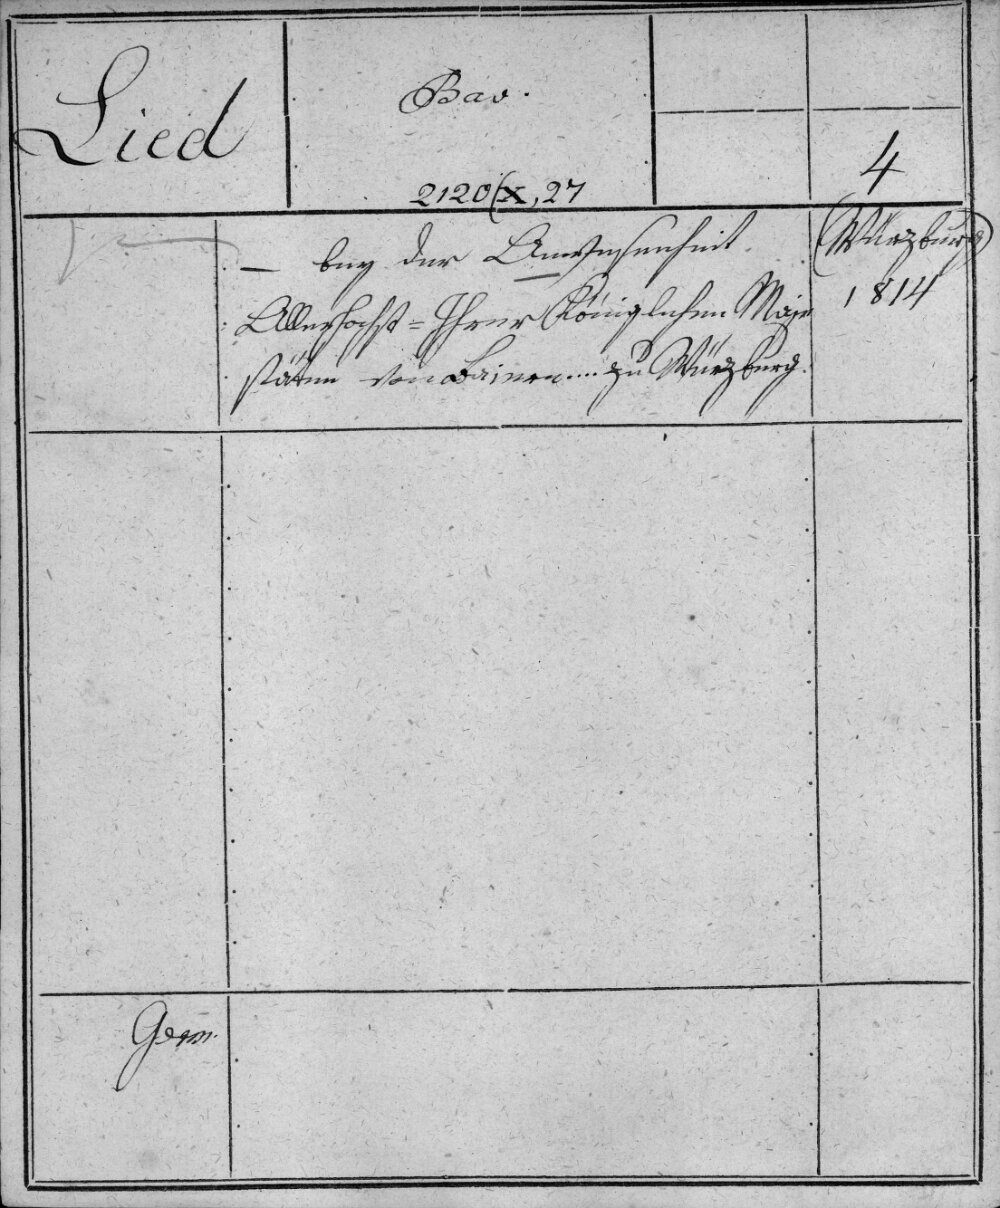 Lied
Bav.
2120(X, 27
4
— bey der Anwesenheit
Allerhöchst=Ihrer Königlichen Maje
stäten von Baiern .... zu Würzburg.
(Würzburg)
1814
Germ.